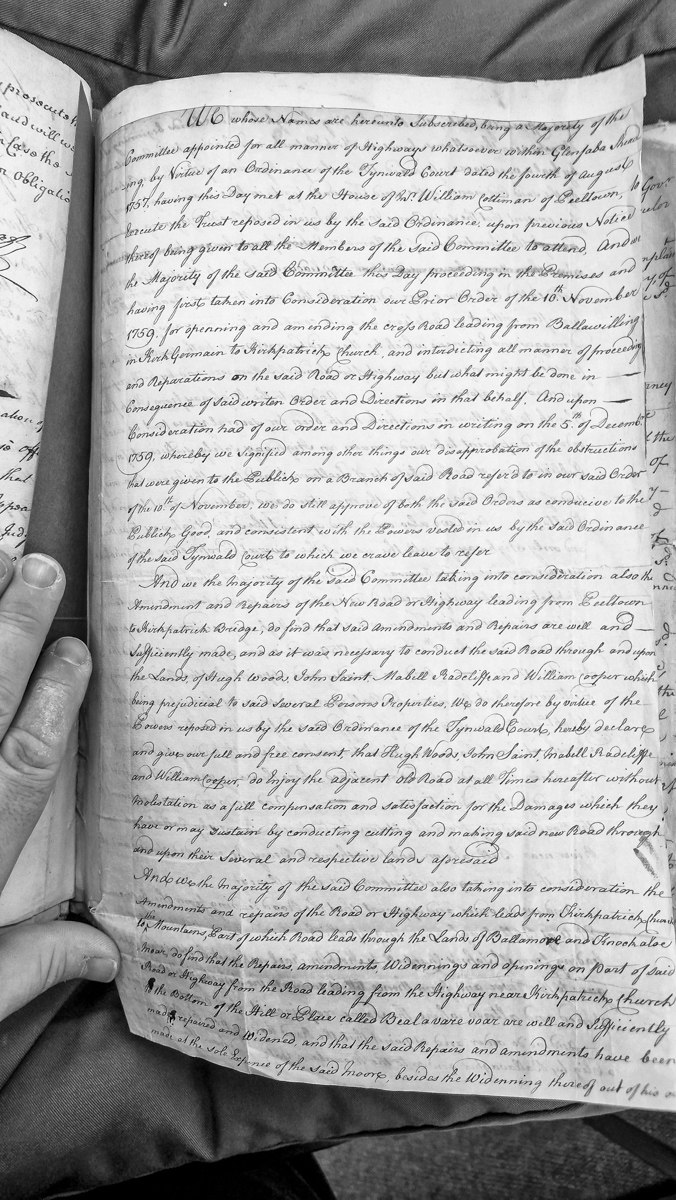 WE whose Names are hereunto Subscribed, being a Majority of the
Committee appointed for all manner of Highways whatsoever within Glenfaba Shead
ing, by Virtue of an Ordinance of the Tynwald Court Dated the fourth of August
1757, having this Day met at the House of Mr. William Cottiman of Peeltown, to
execute the Trust reposed in us by the said Ordinance, upon previous Notice
thereof being given to all the Members of the said Committee to attend, And we
the Majority of the said Committee this Day proceeding in the Premises and
having first taken into Consideration our Prior Order of the 10th November
1759, for openning and amending the cross Road leading from Ballawilling
in Kirk Germain to Kirkpatrick Church, and interdicting all manner of proceeding
and Reparations on the said Road or Highway but what might be done in
Consequence of said writen Order and Directions in that behalf. And upon
Consideration had of our order and Directions in writing on the 5th of Decembr.
1759, whereby we signified among other things our desapprobation of the obstructions
that were given to the Publick on a Branch of said Road refer'd to in our said Order
of the 10th of November, we do still approve of both the said Orders as conducive to the
Publick Good, and consistent with the Powers vested in us by the said Ordinance
of the said Tynwald Court to which we crave leave to refer
And we the Majority of the said Committee taking into consideration also the
Amendment and Repairs of the New Road or Highway leading from Peeltown
to Kirkpatrick Bridge, do find that said Amendments and Repairs are well and
sufficiently made, and as it was necessary to conduct the said Road through and upon
the Lands of Hugh Woods, John Saint, Mabell Radcliffe and William Cooper which
being prejudicial to said several Persons Properties, We do therefore by virtue of the
Powers reposed in us by the said Ordinance of the Tynwald Court, hereby declare
and give our full and free consent, that Hugh Woods, John Saint, Mabell Radcliffe
and William Cooper, do Enjoy the adjacent Old Road at all Times hereafter without
Molistation as a full compensation and satisfaction for the Damages which they
have or may sustain by conducting cutting and making said new Road through
and upon their Several and respective lands aforesaid
And we the Majority of the said Committee also taking into consideration the
Amendments and repairs of the Road or Highway which leads from Kirkpatrick Church
to the Mountains, Part of which Road leads through the Lands of Ballamore and Knockaloe
Moar, do find that the Repairs, amendments, Widennings and openings on part of said
Road or Highway from the Road leading from the Highway near Kirkpatrick Church
to the Bottom of the Hill or Place called Beal aware voar are well and Sufficiently
made repaired and Widened, and that the said Repairs and amendments have been
made at the sole Expence of the said Moore, besides the Widenning thereof out of his